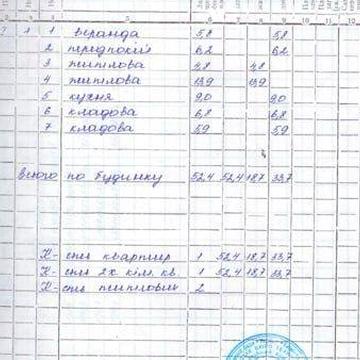 4 5 6 7 8 9 10 11
7 1 1 веранда 5,8 5,8
2 передпокій 6,2 6,2
3 житлова 4,8 4,8
4 житлова 13,9 13,9
5 кухня 9,0 9,0
6 кладова 6,8 6,8
7 кладова 5,9 5,9
всього по будинку 52,4 52,4 18,7 33,7
К-сть квартир 1 52,4 18,7 33,7
К-сть 2х кімн. кв. 1 52,4 18,7 33,7
К-сть житлових 2